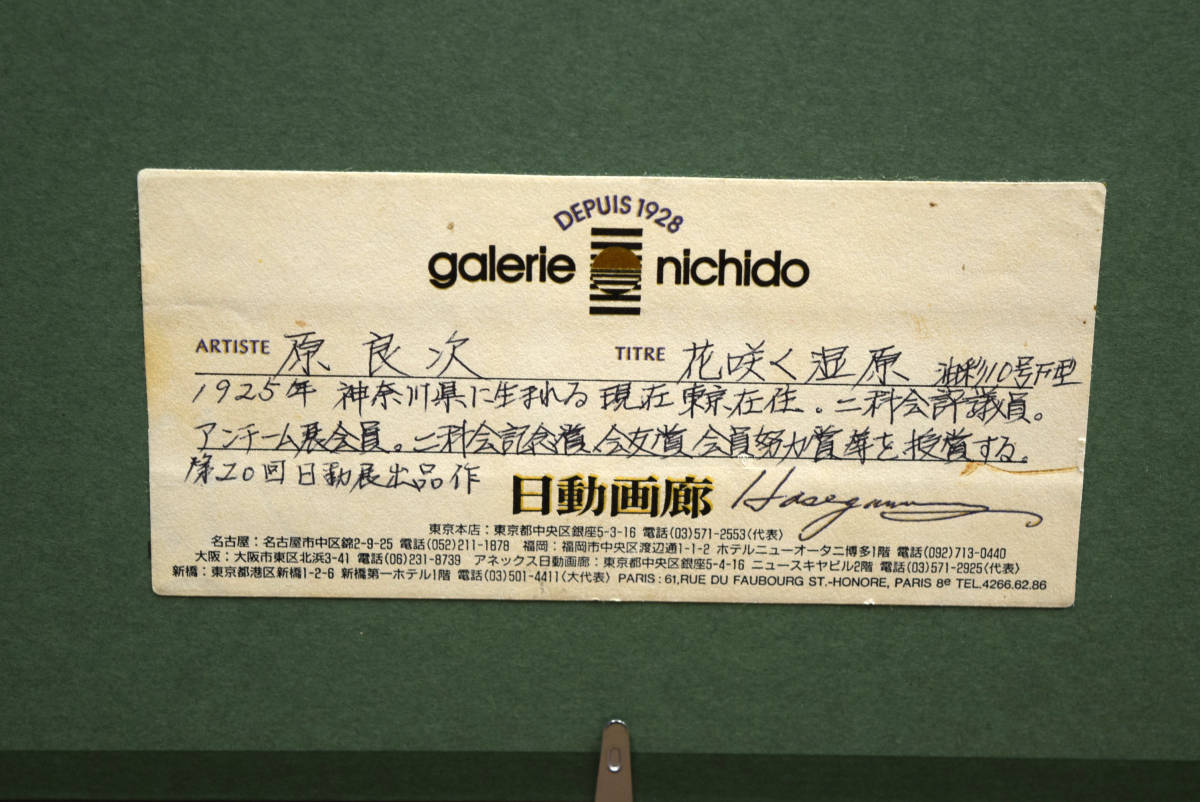 DEPUIS 1928
galerie nichido
ARTISTE 原良次 TITRE 花咲く湿原 油彩10号F型
1925年 神奈川県に生まれる 現在東京在住。二科会評議員。
アンチーム展会員。二科会記念賞、会友賞 会員努力賞等を授賞する。
第20回日動展出品作
日動画廊 Hasegawa
東京本店:東京都中央区銀座5-3-16 電話(03)571-2553〈代表〉
名古屋:名古屋市中区錦2-9-25 電話(052)211-1878 福岡:福岡市中央区渡辺通1-1-2 ホテルニューオータニ博多1階 電話(092)713-0440
大阪:大阪市東区北浜3-41 電話(06)231-8739 アネックス日動画廊:東京都中央区銀座5-4-16 ニュースキヤビル2階 電話(03)571-2925〈代表〉
新橋:東京都港区新橋1-2-6 新橋第一ホテル1階 電話(03)501-4411(大代表) PARIS : 61,RUE DU FAUBOURG ST.-HONORE, PARIS 8e TEL.4266.62.86